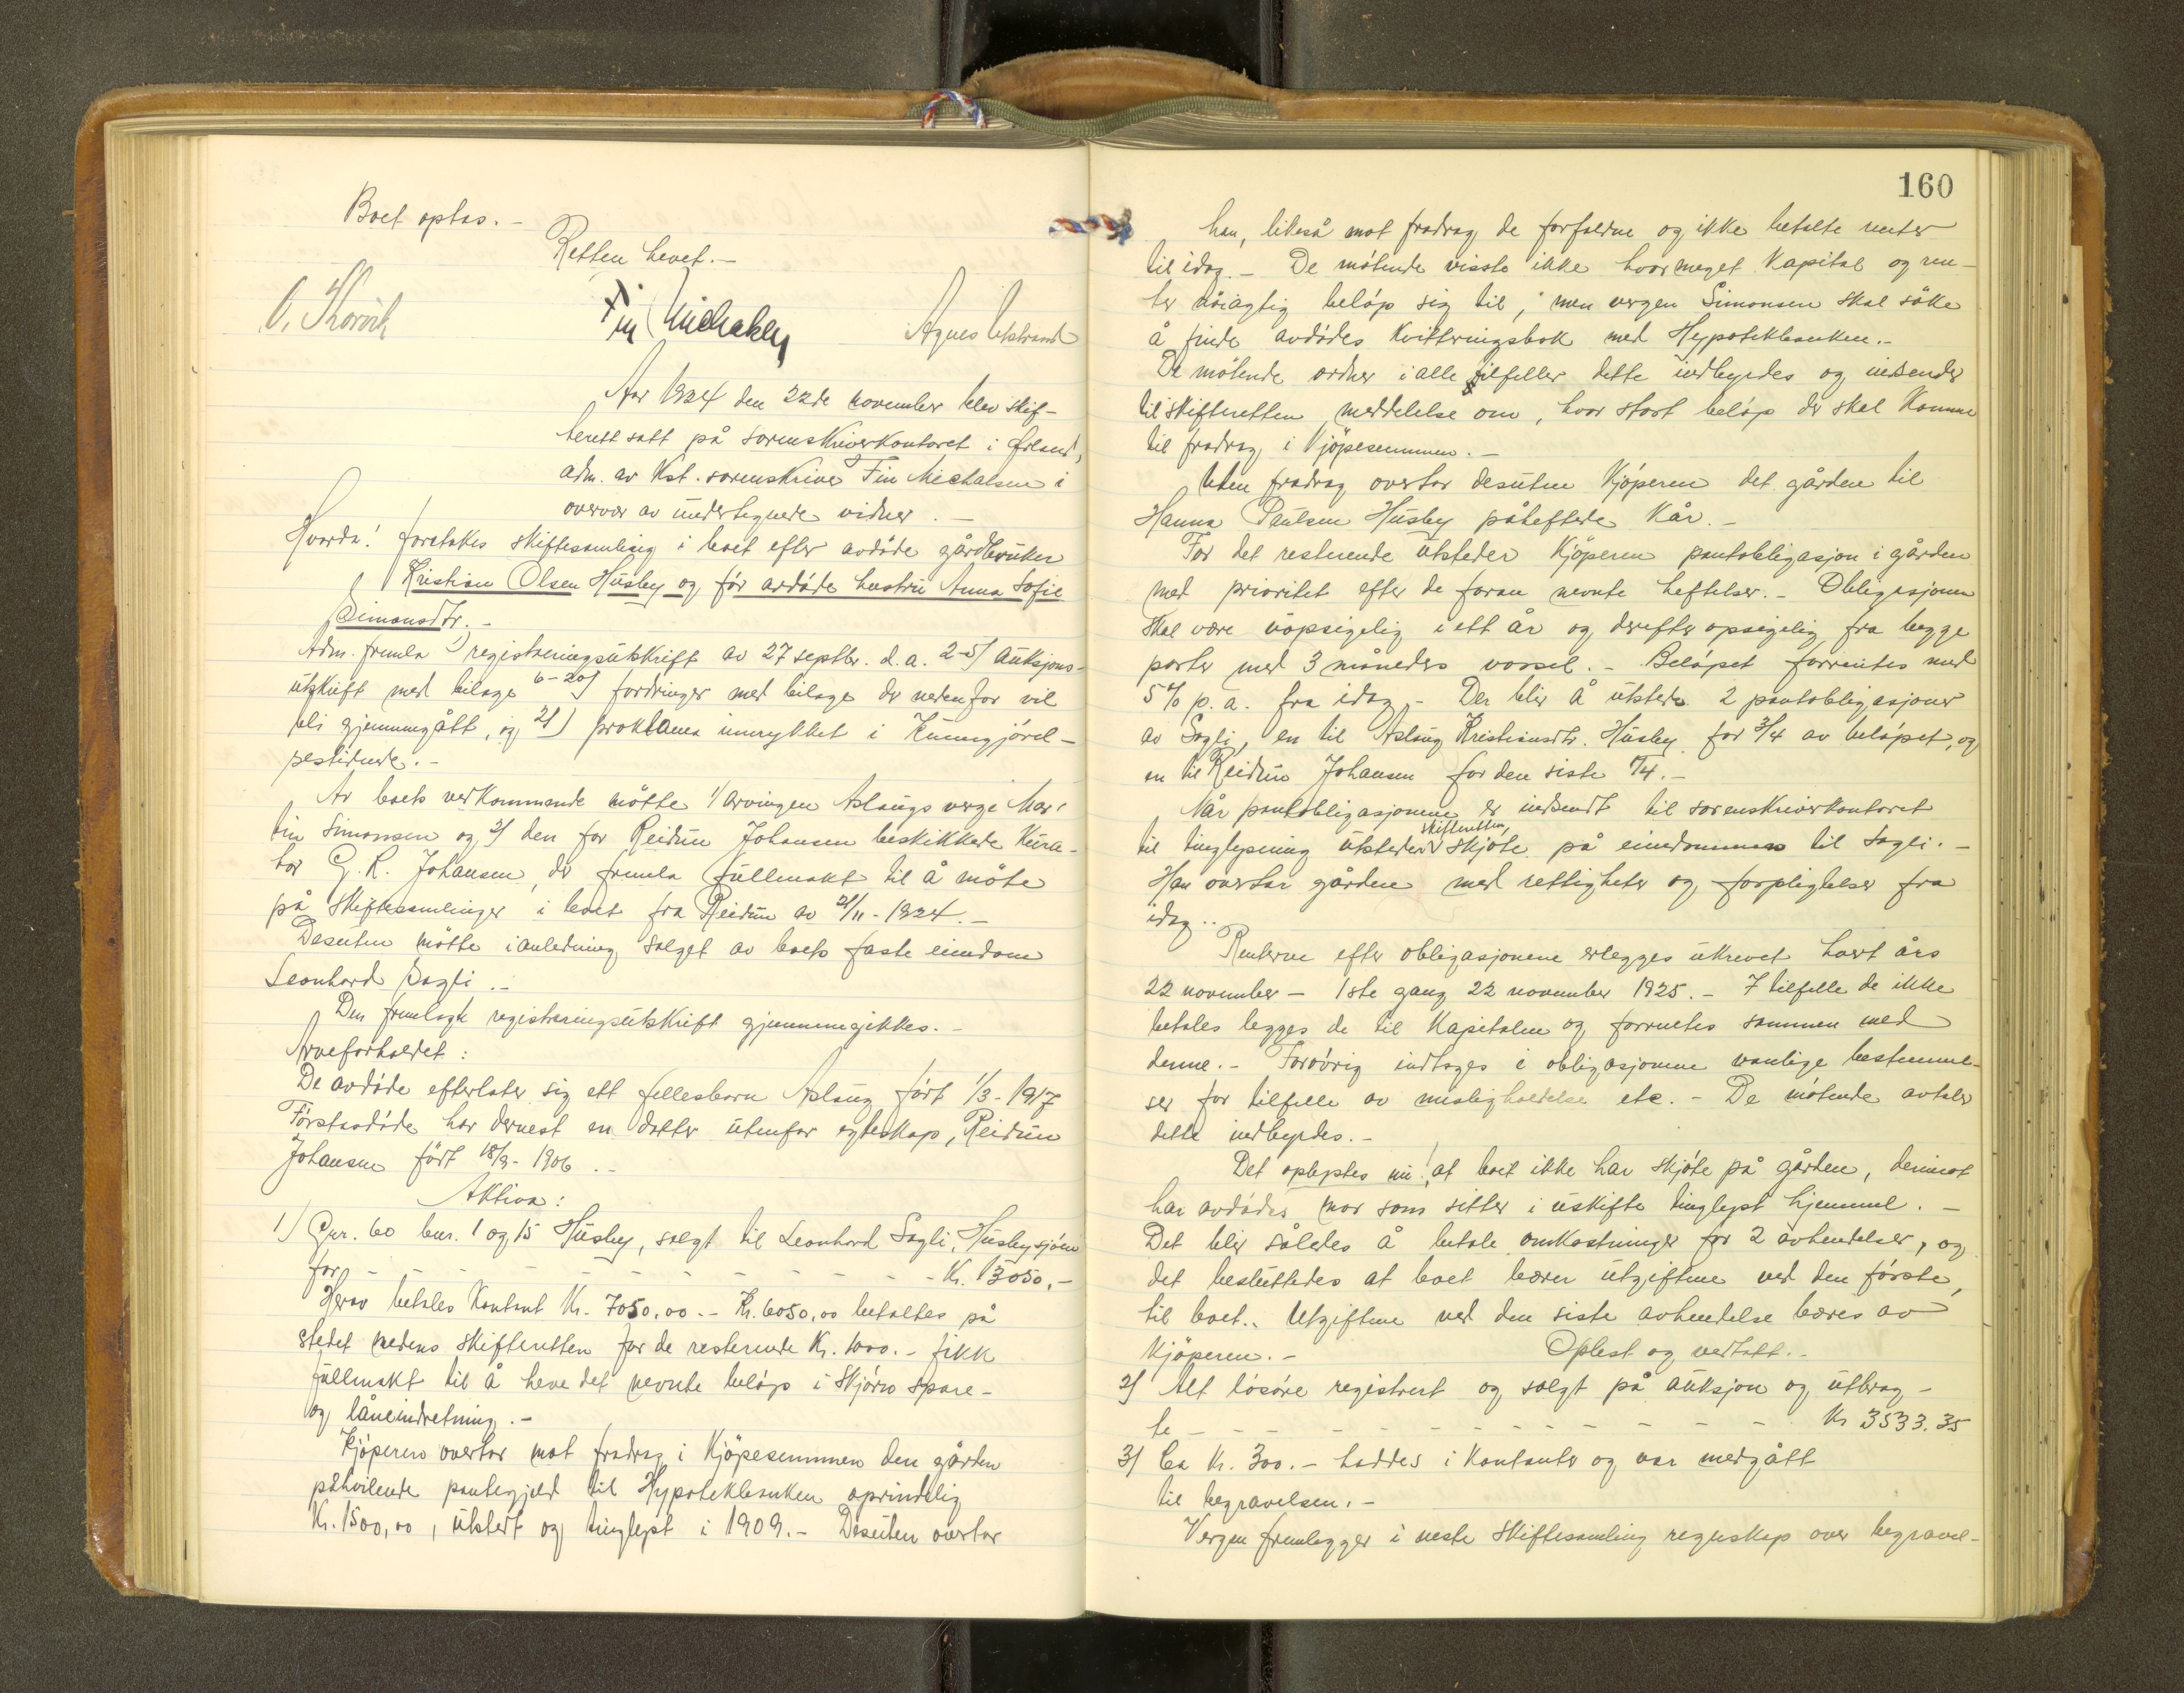 Boet optas. -
Retten hevet. -
Fin Michalsen
Agnes Utstrand
Aar 1924 den 22de november blev skif-
terett satt på sorenskriverkontoret i Ørland,
adm. av Kst. sorenskriver Fin Michalsen i
overvær av undertegnede vidner. -
Hvorda! foretokes skiftesamling i boet efter avdøde gårdbruker
Kristian Olsen Husby og før avdøde hustru Anna Sofie
Simonsdtr. -
Adm. fremla 1) registreringsutskrift av 27 septbr. d. a. 2-5) auksjons-
utskrift med bilage 6-20) fordringer med bilage der nedenfor vil
bli gjennemgått, og 21) proklama innrykket i Kunngjørel-
sestidende. -
Av boets vedkommende møtte 1) arvingen Aslaugs verge Mar-
tin Simonsen og 2) den for Reidun Johansen beskikkede Kura-
tor G. R. Johansen, der fremla fullmakt til å møte
på skiftesamlinger i boet fra Reidun av 21/11 - 1924. -
Desuten møtte i anledning salget av boets faste eiendom
Leonhard Sagli. -
Den fremlagte registreringsutskrift gjennemgikkes. -
Arveforholdet:
De avdøde efterlater sig ett fellesbarn Aslaug født 1/3 - 1917
Førstavdøde har dernest en datter utenfor egteskap, Reidun
Johansen født 18/9 - 1906. -
Aktiva:
1) Gnr. 60 bnr. 1 og 15 Husby, solgt til Leonhard Sagli, Husbysjøen
for - - - - - - - - - - - Kr. 13050,-
Herav betales Kontant Kr. 7050,00. - Kr. 6050,00 betaltes på
stedet medens skifteretten for de resterende Kr. 1000. - fikk
fullmakt til å heve det nevnte beløp i Skjørn Spare-
og låneindretning. -
Kjøperen overtar mot fradrag i Kjøpesummen den gården
påhvilende pantegjeld til Hypotekbanken oprindelig
Kr. 1500,00, utstedt og tinglyst i 1909. - Desuten overtar
160
han, likeså mot fradrag de forfaldne og ikke betalte renter
til idag. - De møtende visste ikke hvormeget Kapital og ren-
ter nøiagtig beløp sig til, men vergen Simonsen skal søke
å finde avdødes Kvitteringsbok med Hypotekbanken. -
De møtende ordner i alle tilfeller dette indbyrdes og innsender
til skifteretten meddelelse om, hvor stort beløp der skal komme
til fradrag i Kjøpesummen. -
Uten fradrag overtar desuten Kjøperen det gården til
Hanna Paulsen Husby påheftede Kår. -
For det resterende utsteder Kjøperen pantobligasjon i gården
med prioritet efter de foran nevnte heftelser. - Obligasjonen
skal være uopsigelig i ett år og derefter opsigelig fra begge
parter med 3 måneders varsel. - Beløpet forrentes med
5 % p. a. fra idag. - Der blir å utstede 2 pantobligasjoner
av Sagli, en til Aslaug Kristiansdtr. Husby for 3/4 av beløpet, og
en til Reidun Johansen for den siste 1/4. -
Når pantobligasjonene er indsendt til sorenskriverkontoret
til tinglysning utsteder skifteretten skjøte på eiendommen til Sagli. -
Han overtar gården med rettigheter og forpligtelser fra
idag. -
Renterne efter obligasjonene erlegges ukrevet hvert års
22 november - 1ste gang 22 november 1925. - I tilfelle de ikke
betales legges de til Kapitalen og forrentes sammen med
denne. - Forøvrig indtages i obligasjonene vanlige bestemmel-
ser for tilfelle av misligholdelse etc. - De møtende avtaler
dette indbyrdes. -
Det oplystes nu! at boet ikke har skjøte på gården, derimot
har avdødes mor som sitter i uskifte tinglyst hjemmel. -
Det blir således å betale omkostninger for 2 avhendelser, og
det besluttedes at boet bærer utgiftene ved den første,
til boet.. Utgiftene ved den siste avhendelse bæres av
Kjøperen. - Oplest og vedtatt. -
2) Alt løsøre registrert og solgt på auksjon og utbrag-
te - - - - - - - - - - - Kr 3533.35
3) Ca Kr. 300. - haddes i Kontanter og var medgått
til begravelsen. -
Vergen fremlegger i neste skiftesamling regnskap over begravel-